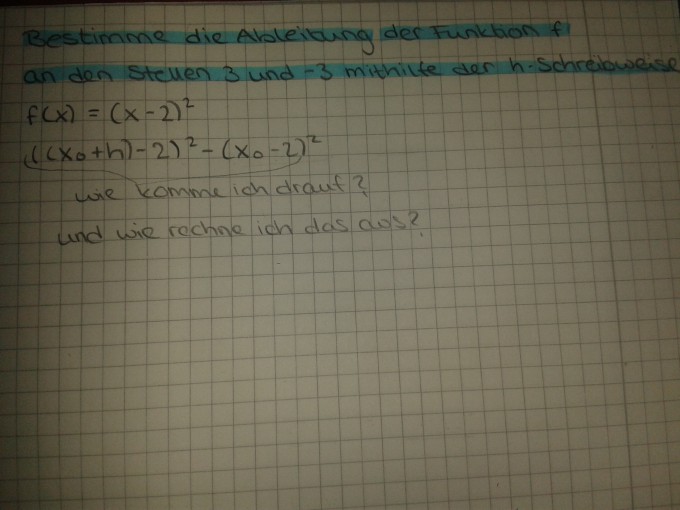 Bestimme die Ableitung der Funktion f
an den Stellen 3 und -3 mithilfe der h-Schreibweise
f(x) = (x-2)²
((x₀+h)-2)² - (x₀-2)²
wie komme ich drauf?
und wie rechne ich das aus?